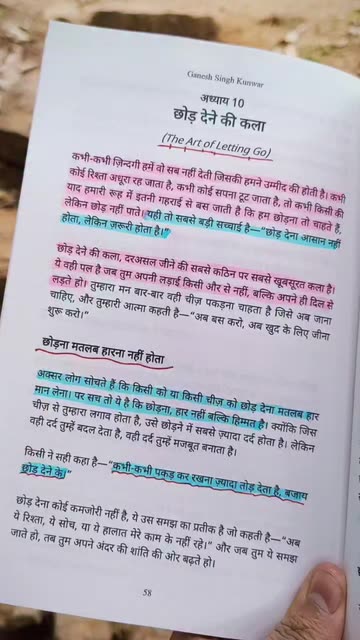 Ganesh Singh Kunwar
अध्याय 10
छोड़ देने की कला
(The Art of Letting Go)
कभी-कभी ज़िन्दगी हमें वो सब नहीं देती जिसकी हमने उम्मीद की होती है। कभी
कोई रिश्ता अधूरा रह जाता है, कभी कोई सपना टूट जाता है, तो कभी किसी की
याद हमारी रूह में इतनी गहराई से बस जाती है कि हम छोड़ना तो चाहते हैं,
लेकिन छोड़ नहीं पाते। यही तो सबसे बड़ी सच्चाई है—“छोड़ देना आसान नहीं
होता, लेकिन ज़रूरी होता है।”
छोड़ देने की कला, दरअसल जीने की सबसे कठिन पर सबसे खूबसूरत कला है।
ये वही पल है जब तुम अपनी लड़ाई किसी और से नहीं, बल्कि अपने ही दिल से
लड़ते हो। तुम्हारा मन बार-बार वही चीज़ पकड़ना चाहता है जिसे अब जाना
चाहिए, और तुम्हारी आत्मा कहती है—“अब बस करो, अब खुद के लिए जीना
शुरू करो।”
छोड़ना मतलब हारना नहीं होता
अक्सर लोग सोचते हैं कि किसी को या किसी चीज़ को छोड़ देना मतलब हार
मान लेना। पर सच तो ये है कि छोड़ना, हार नहीं बल्कि हिम्मत है। क्योंकि जिस
चीज़ से तुम्हारा लगाव होता है, उसे छोड़ने में सबसे ज़्यादा दर्द होता है। लेकिन
वही दर्द तुम्हें बदल देता है, वही दर्द तुम्हें मजबूत बनाता है।
किसी ने सही कहा है—“कभी-कभी पकड़ कर रखना ज़्यादा तोड़ देता है, बजाय
छोड़ देने के।”
छोड़ देना कोई कमजोरी नहीं है, ये उस समझ का प्रतीक है जो कहती है—“अब
ये रिश्ता, ये सोच, या ये हालात मेरे काम के नहीं रहे।” और जब तुम ये समझ
जाते हो, तब तुम अपने अंदर की शांति की ओर बढ़ते हो।
58